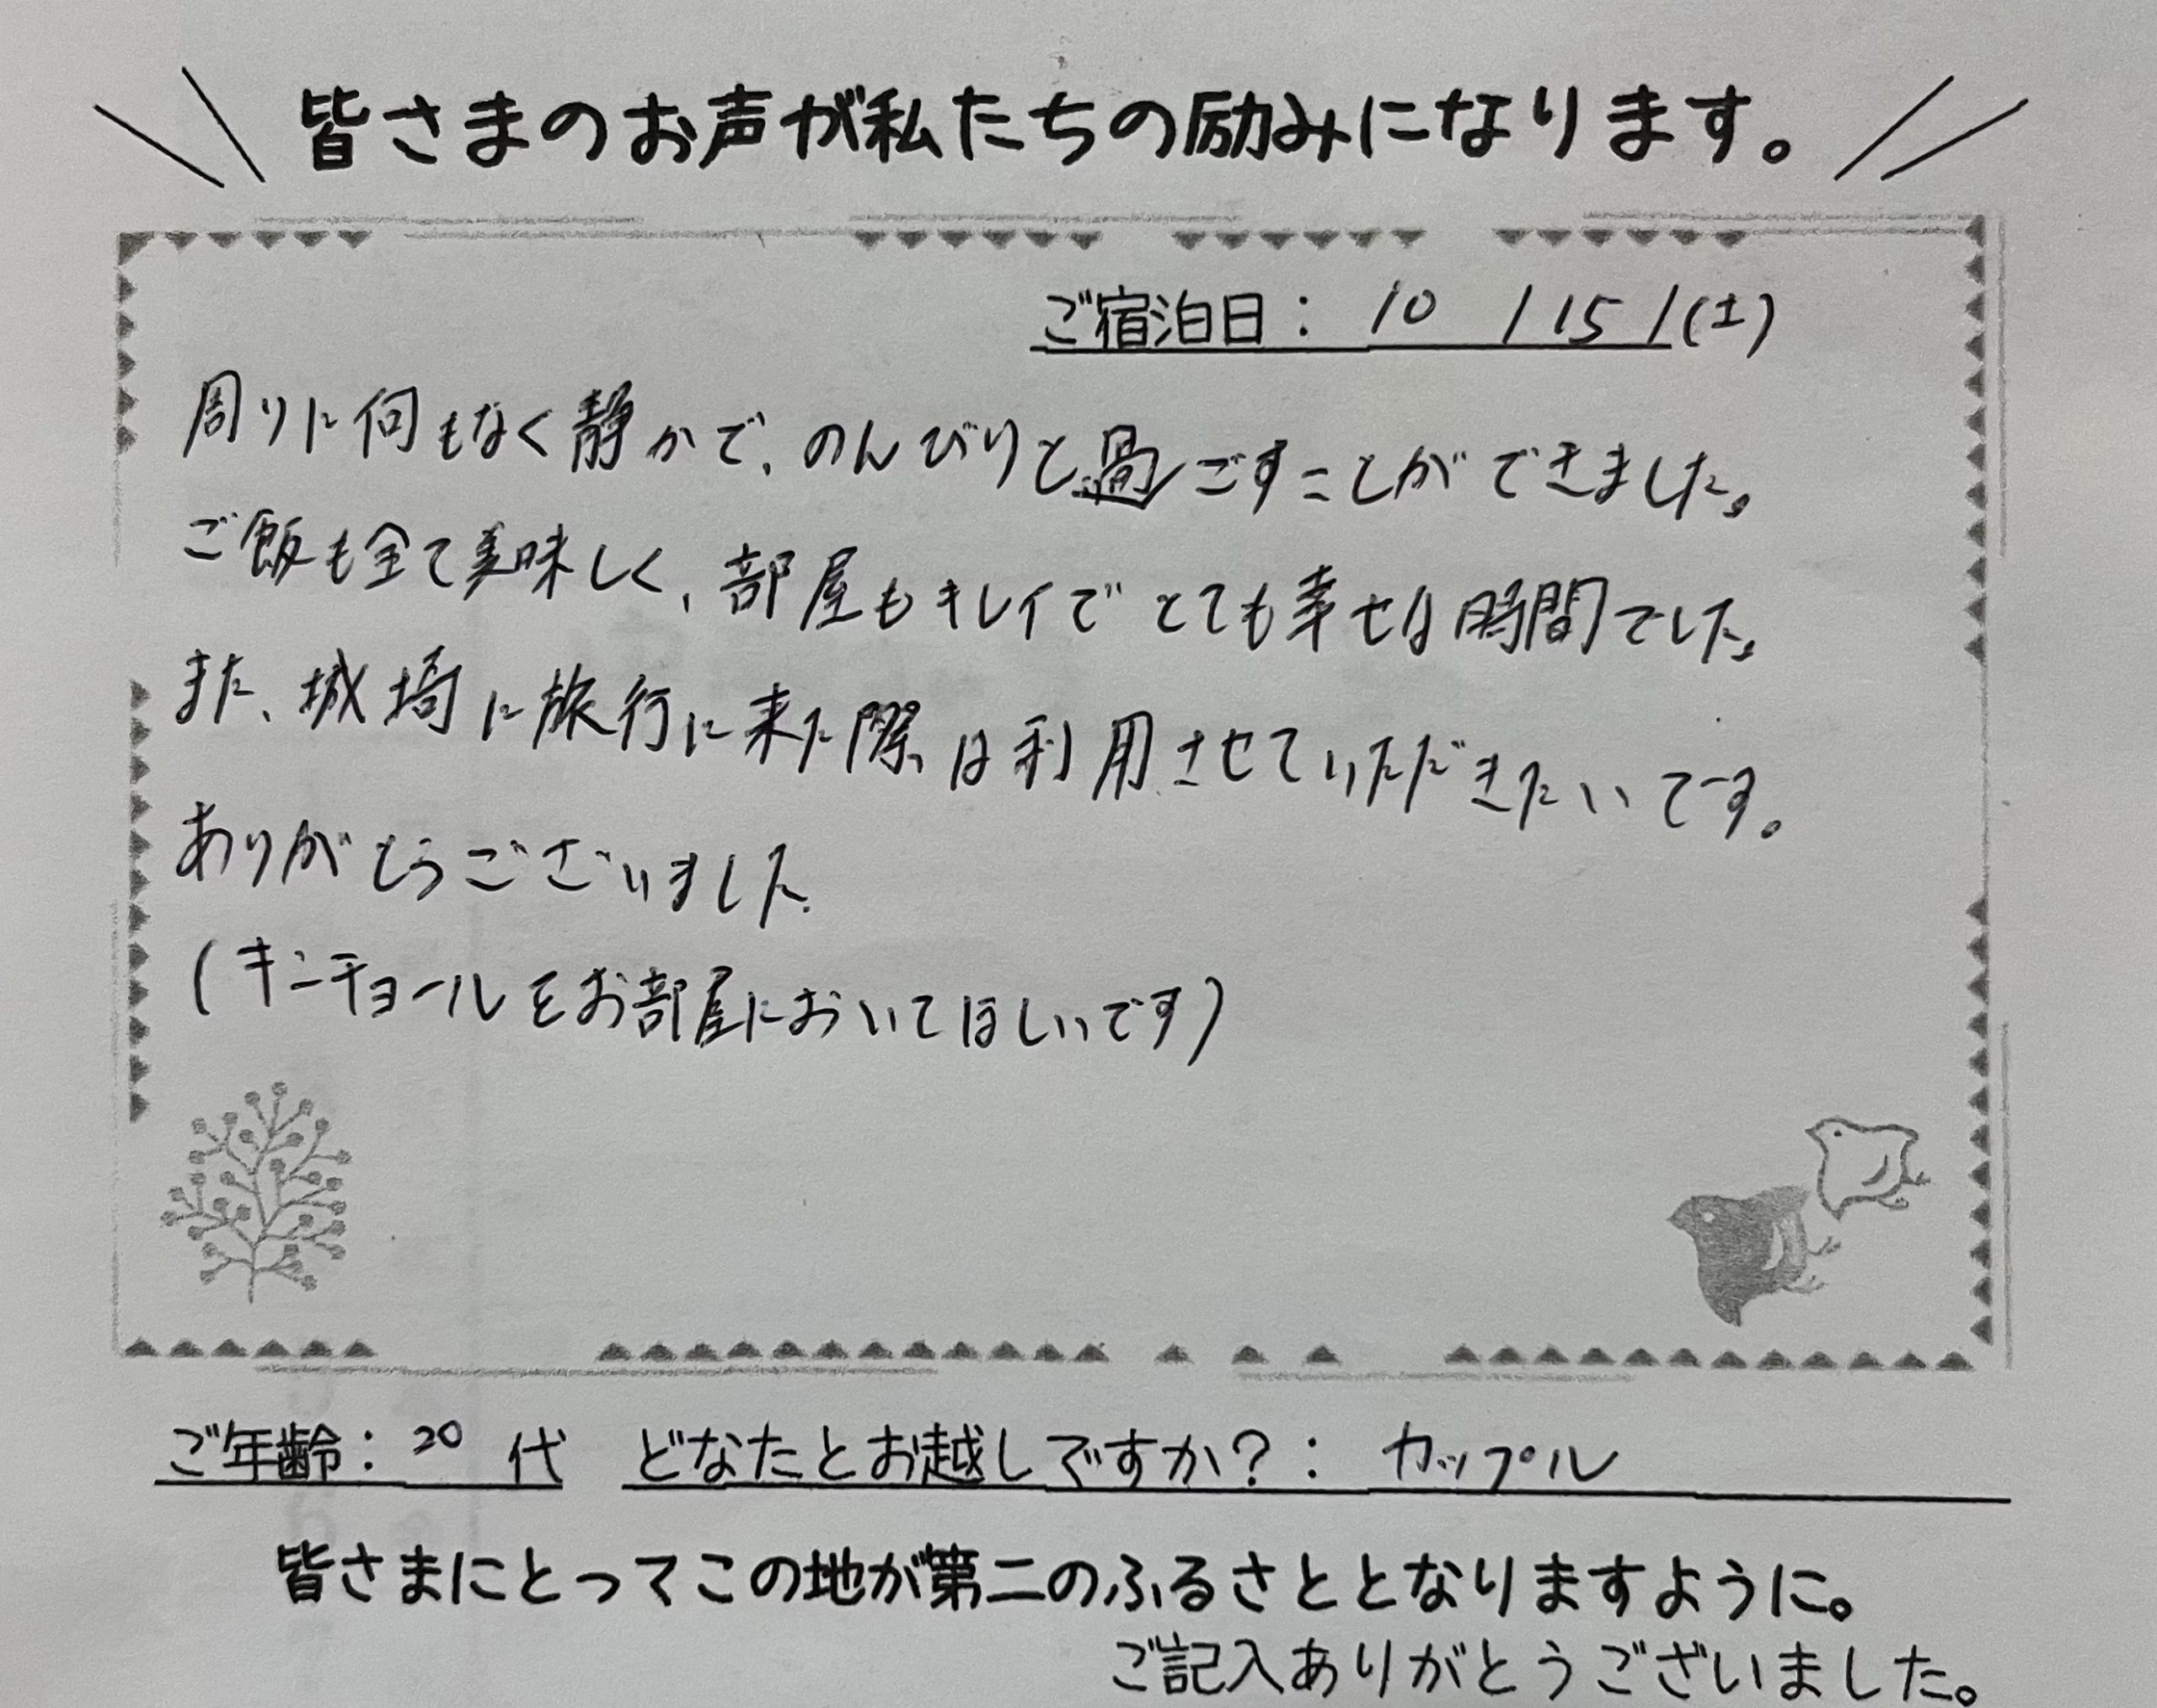 皆さまのお声が私たちの励みになります。
ご宿泊日：10/15/(土)
周りに何もなく静かで、のんびりと過ごすことができました。
ご飯も全て美味しく、部屋もキレイでとても幸せな時間でした。
また、城崎に旅行に来た際は利用させていただきたいです。
ありがとうございました.
(キンチョールをお部屋においてほしいです)
ご年齢：20代 どなたとお越しですか？：カップル
皆さまにとってこの地が第二のふるさととなりますように。
ご記入ありがとうございました。